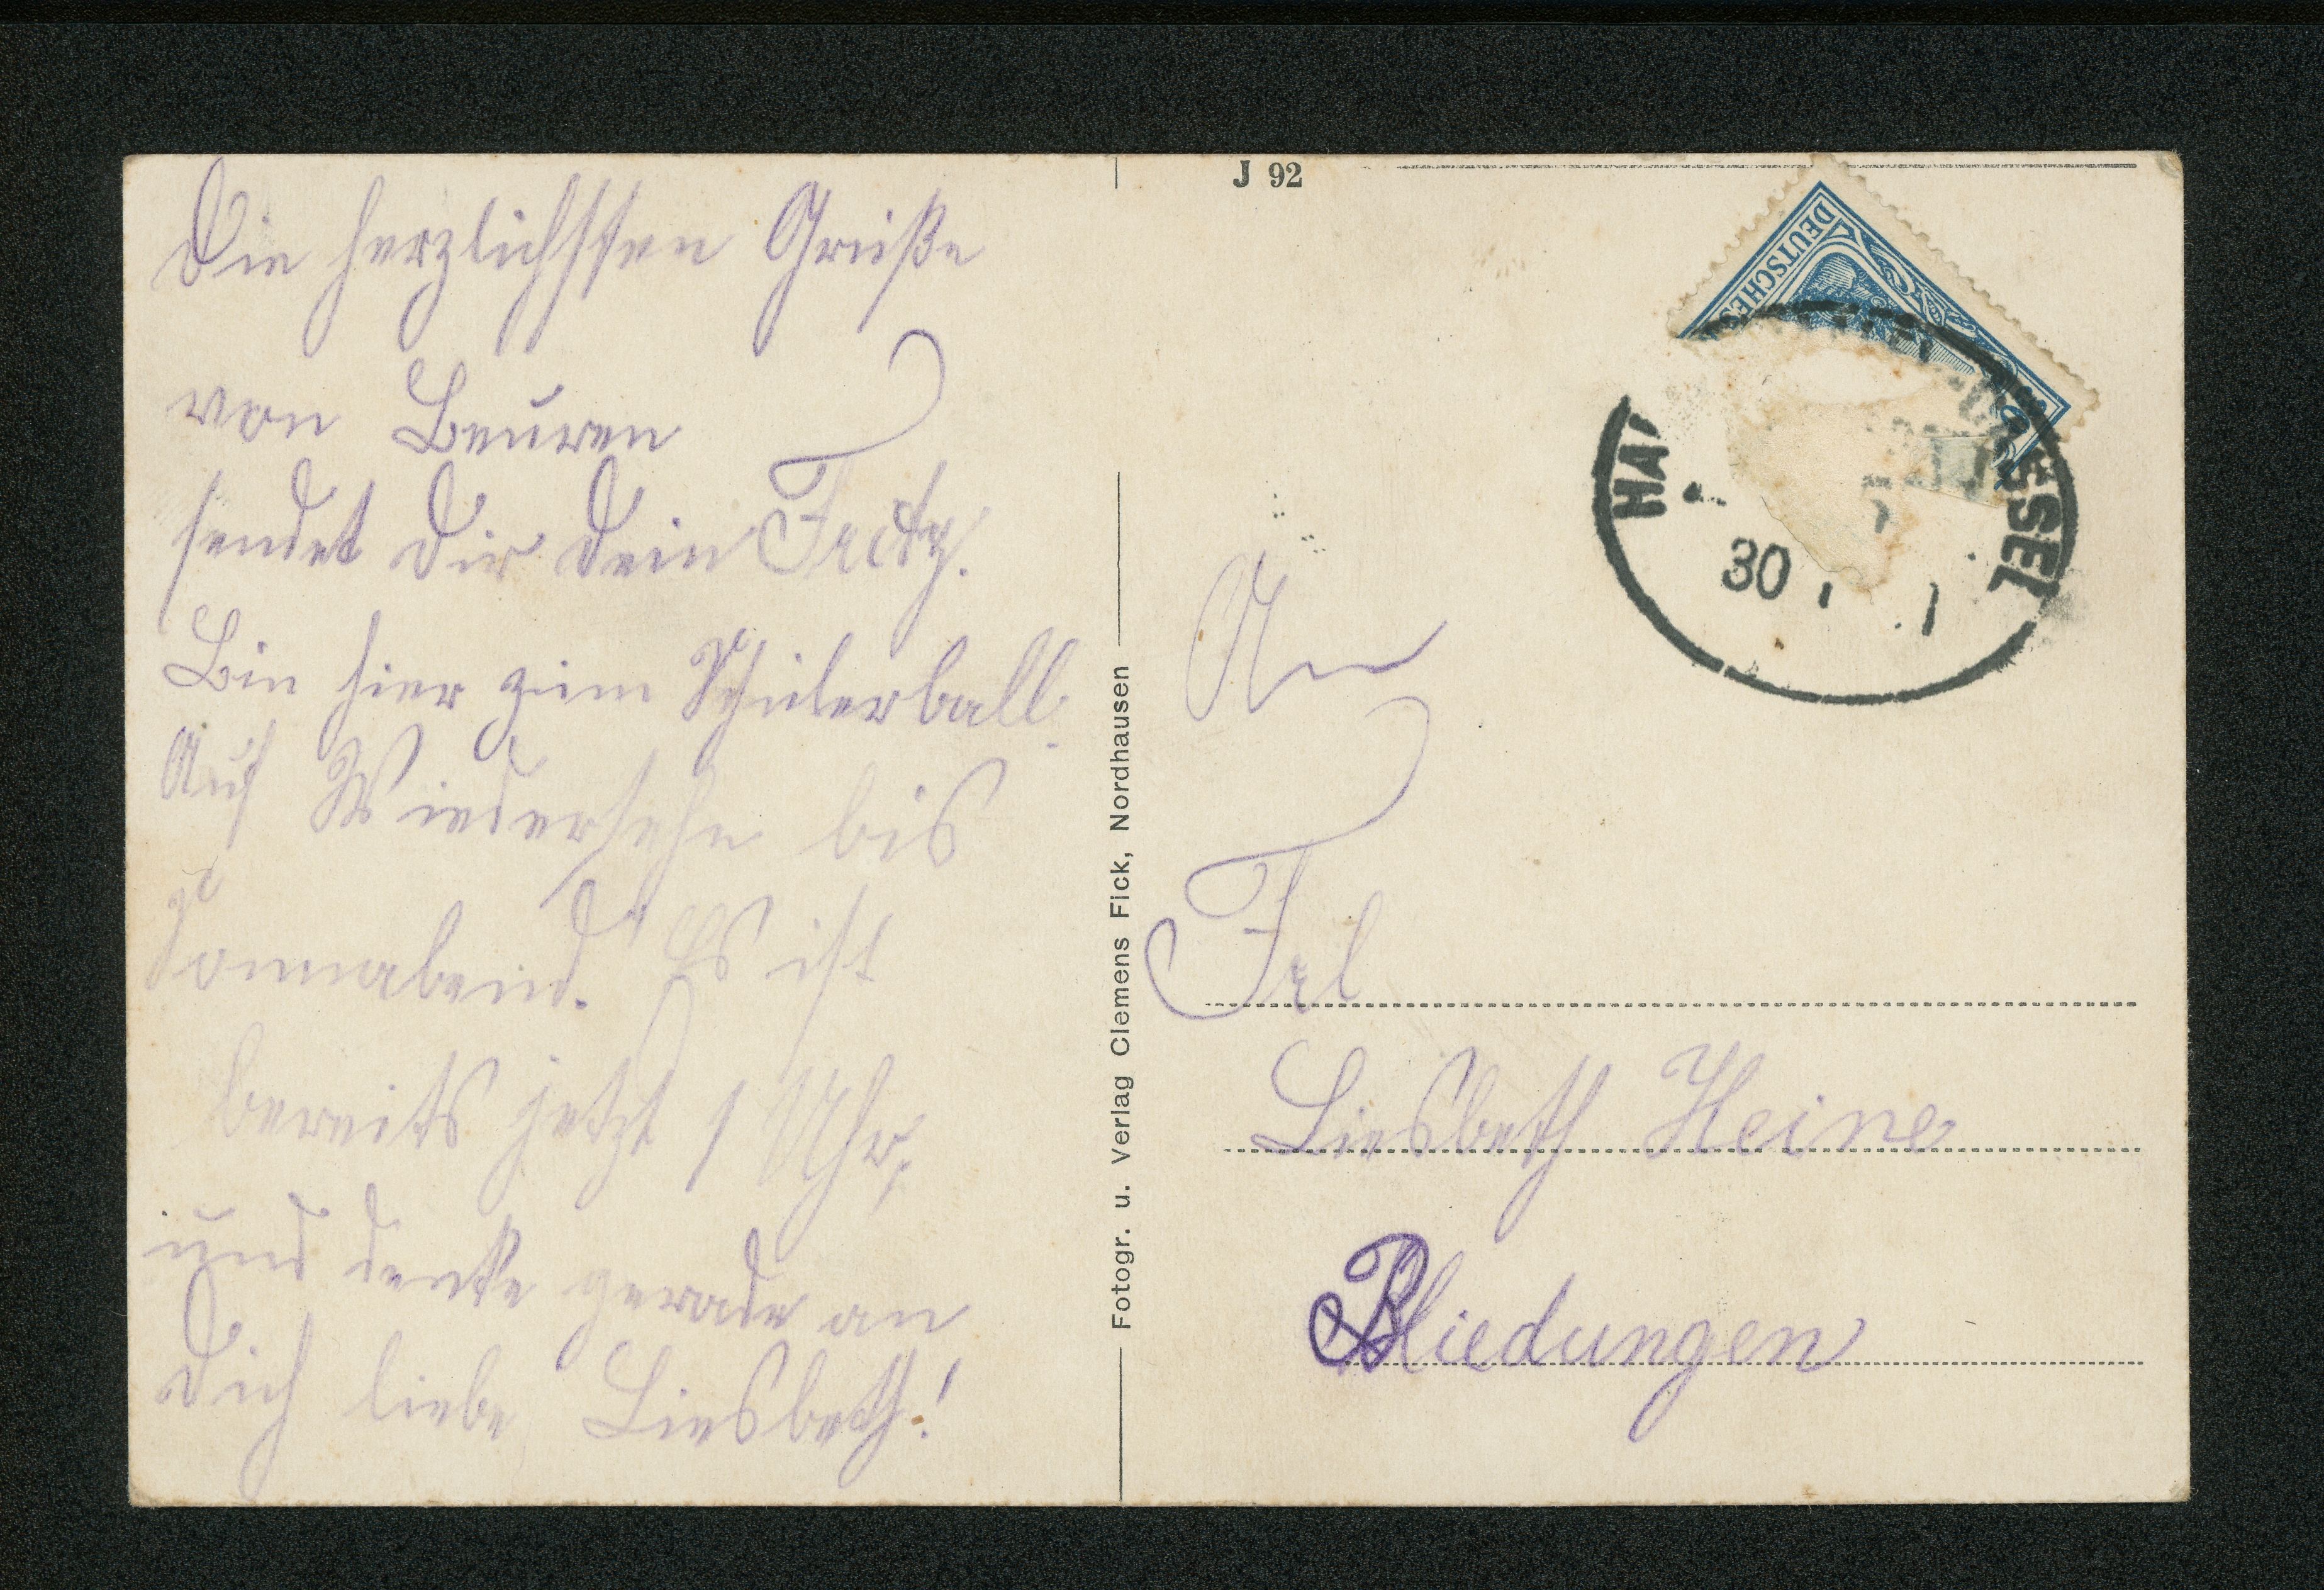 Die herzlichsten Grüße
von Beuren
sendet Dir Dein Fritz.
Bin hier zum Schülerball.
Auf Wiedersehn bis
Sonnabend. Es ist
bereits jetzt 1 Uhr,
und denke gerade an
Dich liebe Liesbeth!
Fotogr. u. Verlag Clemens Fick, Nordhausen
J 92
DEUTSCHES
HA
SSEL
30
An
Frl
Liesbeth Heine
Bliedungen